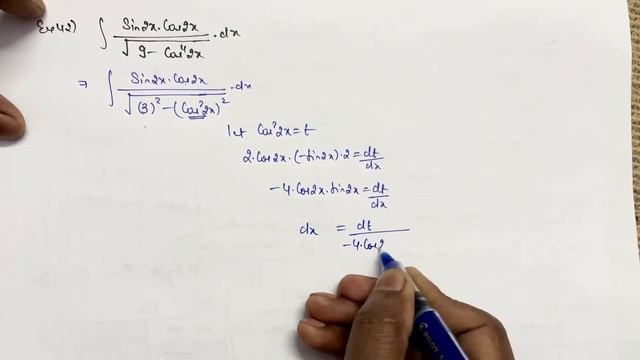 Ex 42) ∫ Sin2x·Cos2x / √(9 − Cos⁴2x) ·dx
⇒ ∫ Sin2x·Cos2x / √((3)² − (Cos²2x)²) ·dx
let Cos²2x = t
2·Cos2x·(−Sin2x)·2 = dt/dx
−4·Cos2x·Sin2x = dt/dx
dx = dt / −4·Cos2